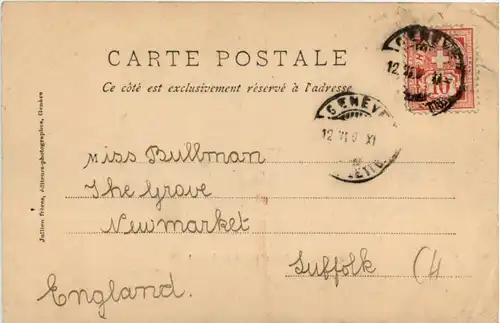 CARTE POSTALE
Ce côté est exclusivement réservé à l'adresse
GENEVE
12 VI
10
GENEVE
12 VI 0 XI
LETTR
Miss Bullman
The Grove
Newmarket
Suffolk
England.
Jullien frères, éditeurs-photographes, Genève